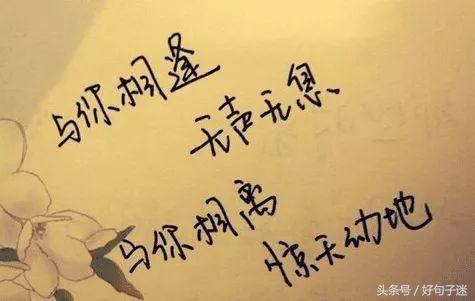 与你相逢
无声无息
与你相离
惊天动地
头条号/好句子迷